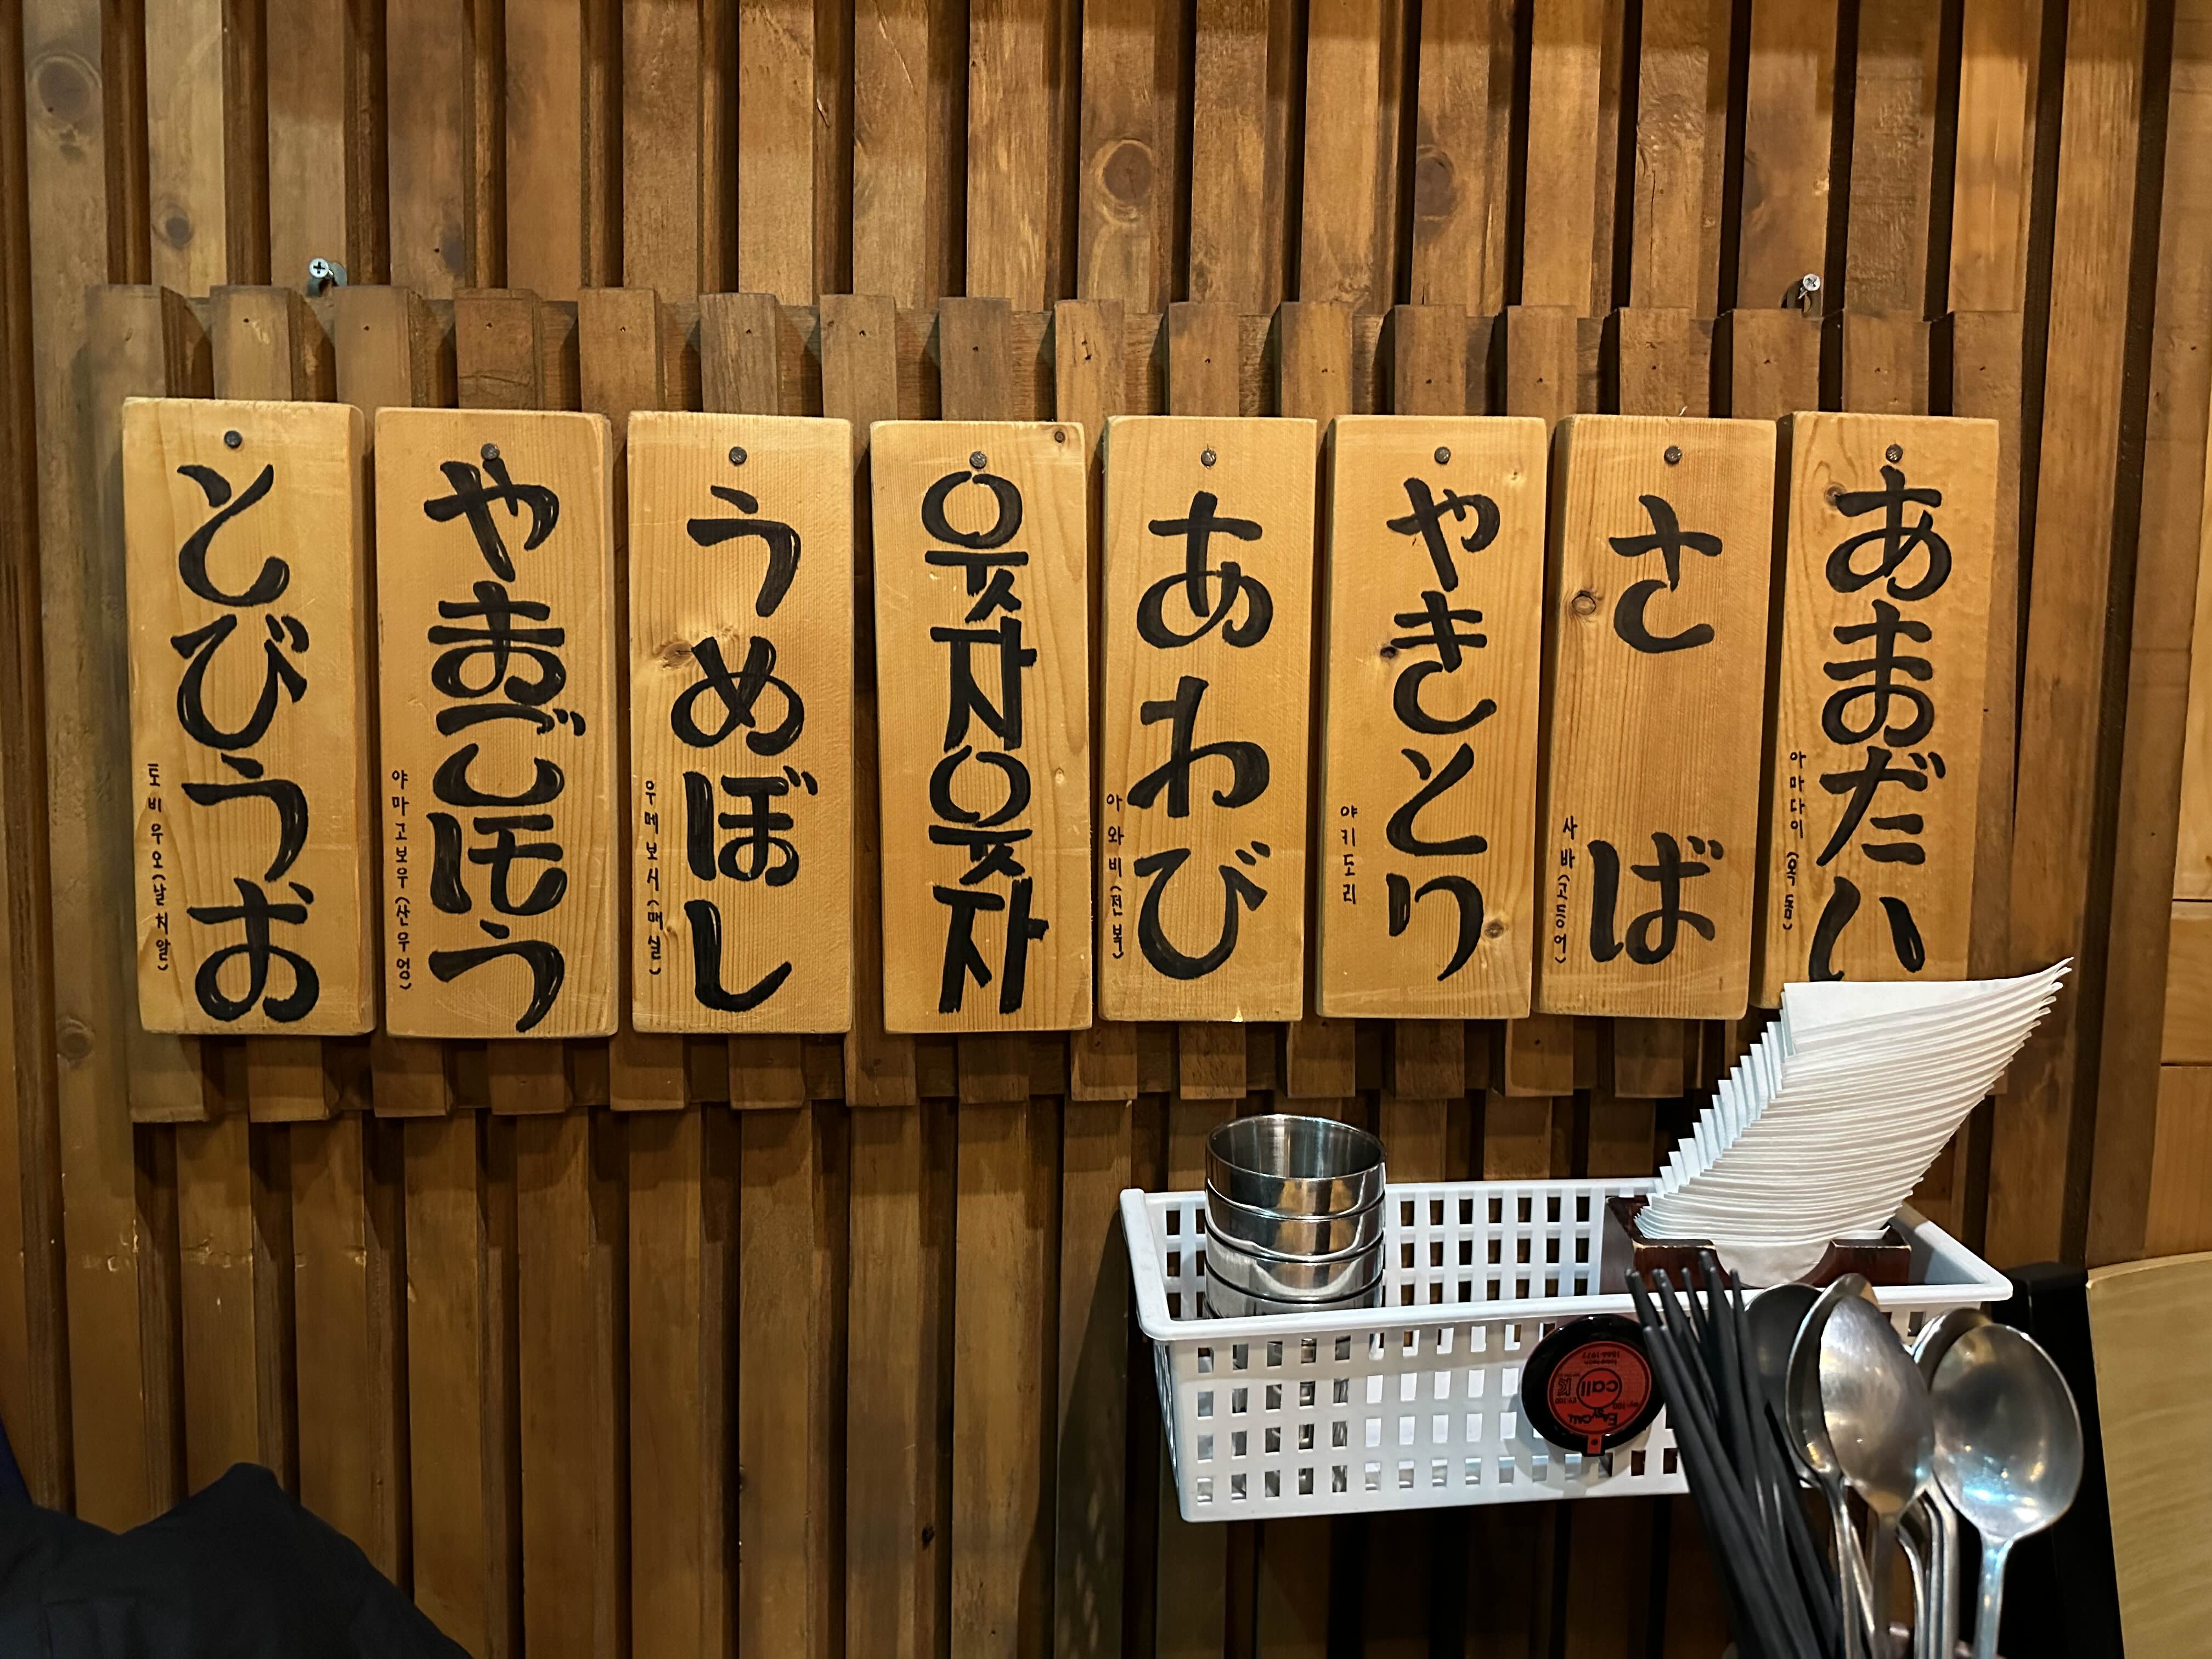 とびうお
토비우오(날치알)
やまごぼう
야마고보우(산우엉)
うめぼし
우메보시(매실)
웃자웃자
あわび
아와비(전복)
やきとり
야키도리
さば
사바(고등어)
あまだい
아마다이(옥돔)
call
EASY CALL
1566-1977